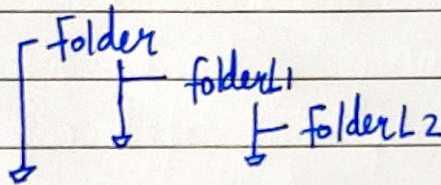 Folder
folderL1
folderL2